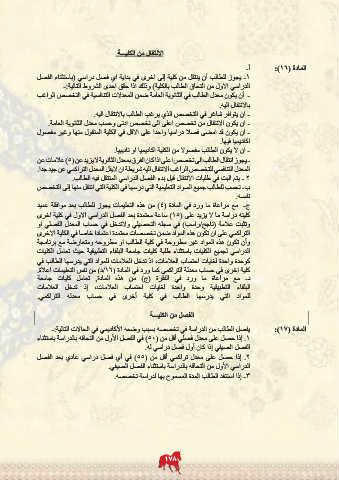 الانتقال من الكليـــة
المادة (١٦):
أ-
١- يجوز للطالب أن ينتقل من كلية إلى أخرى في بداية أي فصل دراسي (باستثناء الفصل
الدراسي الأول من التحاق الطالب بالكلية) وذلك إذا حقق إحدى الشروط التالية:-
- أن يكون معدل الطالب في الثانوية العامة ضمن المعدلات التنافسية في التخصص الراغب
بالانتقال إليه.
- أن يتوافر شاغر في التخصص الذي يرغب الطالب بالانتقال إليه.
- أن يكون الانتقال من تخصص أعلى إلى تخصص أدنى وحسب معدل الثانوية العامة.
- أن يكون قد أمضى فصلاً دراسياً واحداً على الأقل في الكلية المنقول منها وغير مفصول
أكاديمياً فيها.
- أن لا يكون الطالب مفصولاً من الكلية أكاديمياً أو تأديبياً.
- يجوز انتقال الطالب إلى تخصص أعلى إذا كان الفرق بمعدل الثانوية لا يزيد عن (٥) علامات عن
المعدل التنافسي للتخصص الراغب الانتقال إليه شريطة أن لا يقل المعدل التراكمي عن جيد جداً.
٢- يتم البت في طلبات الانتقال قبل بدء الفصل الدراسي المنتقل فيه الطالب.
ب- تحسب للطالب جميع المواد التعليمية التي درسها في الكلية التي انتقل منها إلى التخصص
نفسه.
ج- مع مراعاة ما ورد في المادة (٤) من هذه التعليمات يجوز للطالب بعد موافقة عميد
كليته دراسة ما لا يزيد على (١٥) ساعة معتمدة بعد الفصل الدراسي الأول في كلية أخرى
وتثبت علامة (ناجح/راسب) في سجله التحصيلي ولا تدخل في حساب المعدل الفصلي أو
التراكمي على أن تكون هذه المواد ضمن تخصصات معتمدة اعتماداً خاصاً في الكلية الأخرى
وأن تكون هذه المواد غير مطروحة في كلية الطالب أو مطروحة ومتعارضة مع برنامجه
الدراسي لجميع الكليات باستثناء طلبة كليات جامعة البلقاء التطبيقية حيث تعامل الكليات
كوحدة واحدة لغايات احتساب العلامات، إذ تدخل العلامات للمواد التي يدرسها الطالب في
كلية أخرى في حساب معدله التراكمي كما ورد في المادة (١٦/د) من نص التعليمات أعلاه.
د- مع مراعاة ما ورد في الفقرة (ج) من هذه المادة، تعامل كليات جامعة
البلقاء التطبيقية وحدة واحدة لغايات احتساب العلامات، إذ تدخل العلامات
للمواد التي يدرسها الطالب في كلية أخرى في حساب معدله التراكمي.
الفصل من الكلية
المادة (١٧):
يفصل الطالب من الدراسة في تخصصه بسبب وضعه الأكاديمي في الحالات التالية:-
١. إذا حصل على معدل فصلي أقل من (٥٠) في الفصل الأول من التحاقه بالدراسة باستثناء
الفصل الصيفي إذا كان أول فصل دراسي له.
٢. إذا حصل على معدل تراكمي أقل من (٥٥) في أي فصل دراسي عادي بعد الفصل
الدراسي الأول من التحاقه بالدراسة باستثناء الفصل الصيفي.
٣. إذا استنفد الطالب المدة المسموح بها لدراسة تخصصه.
١٧٨